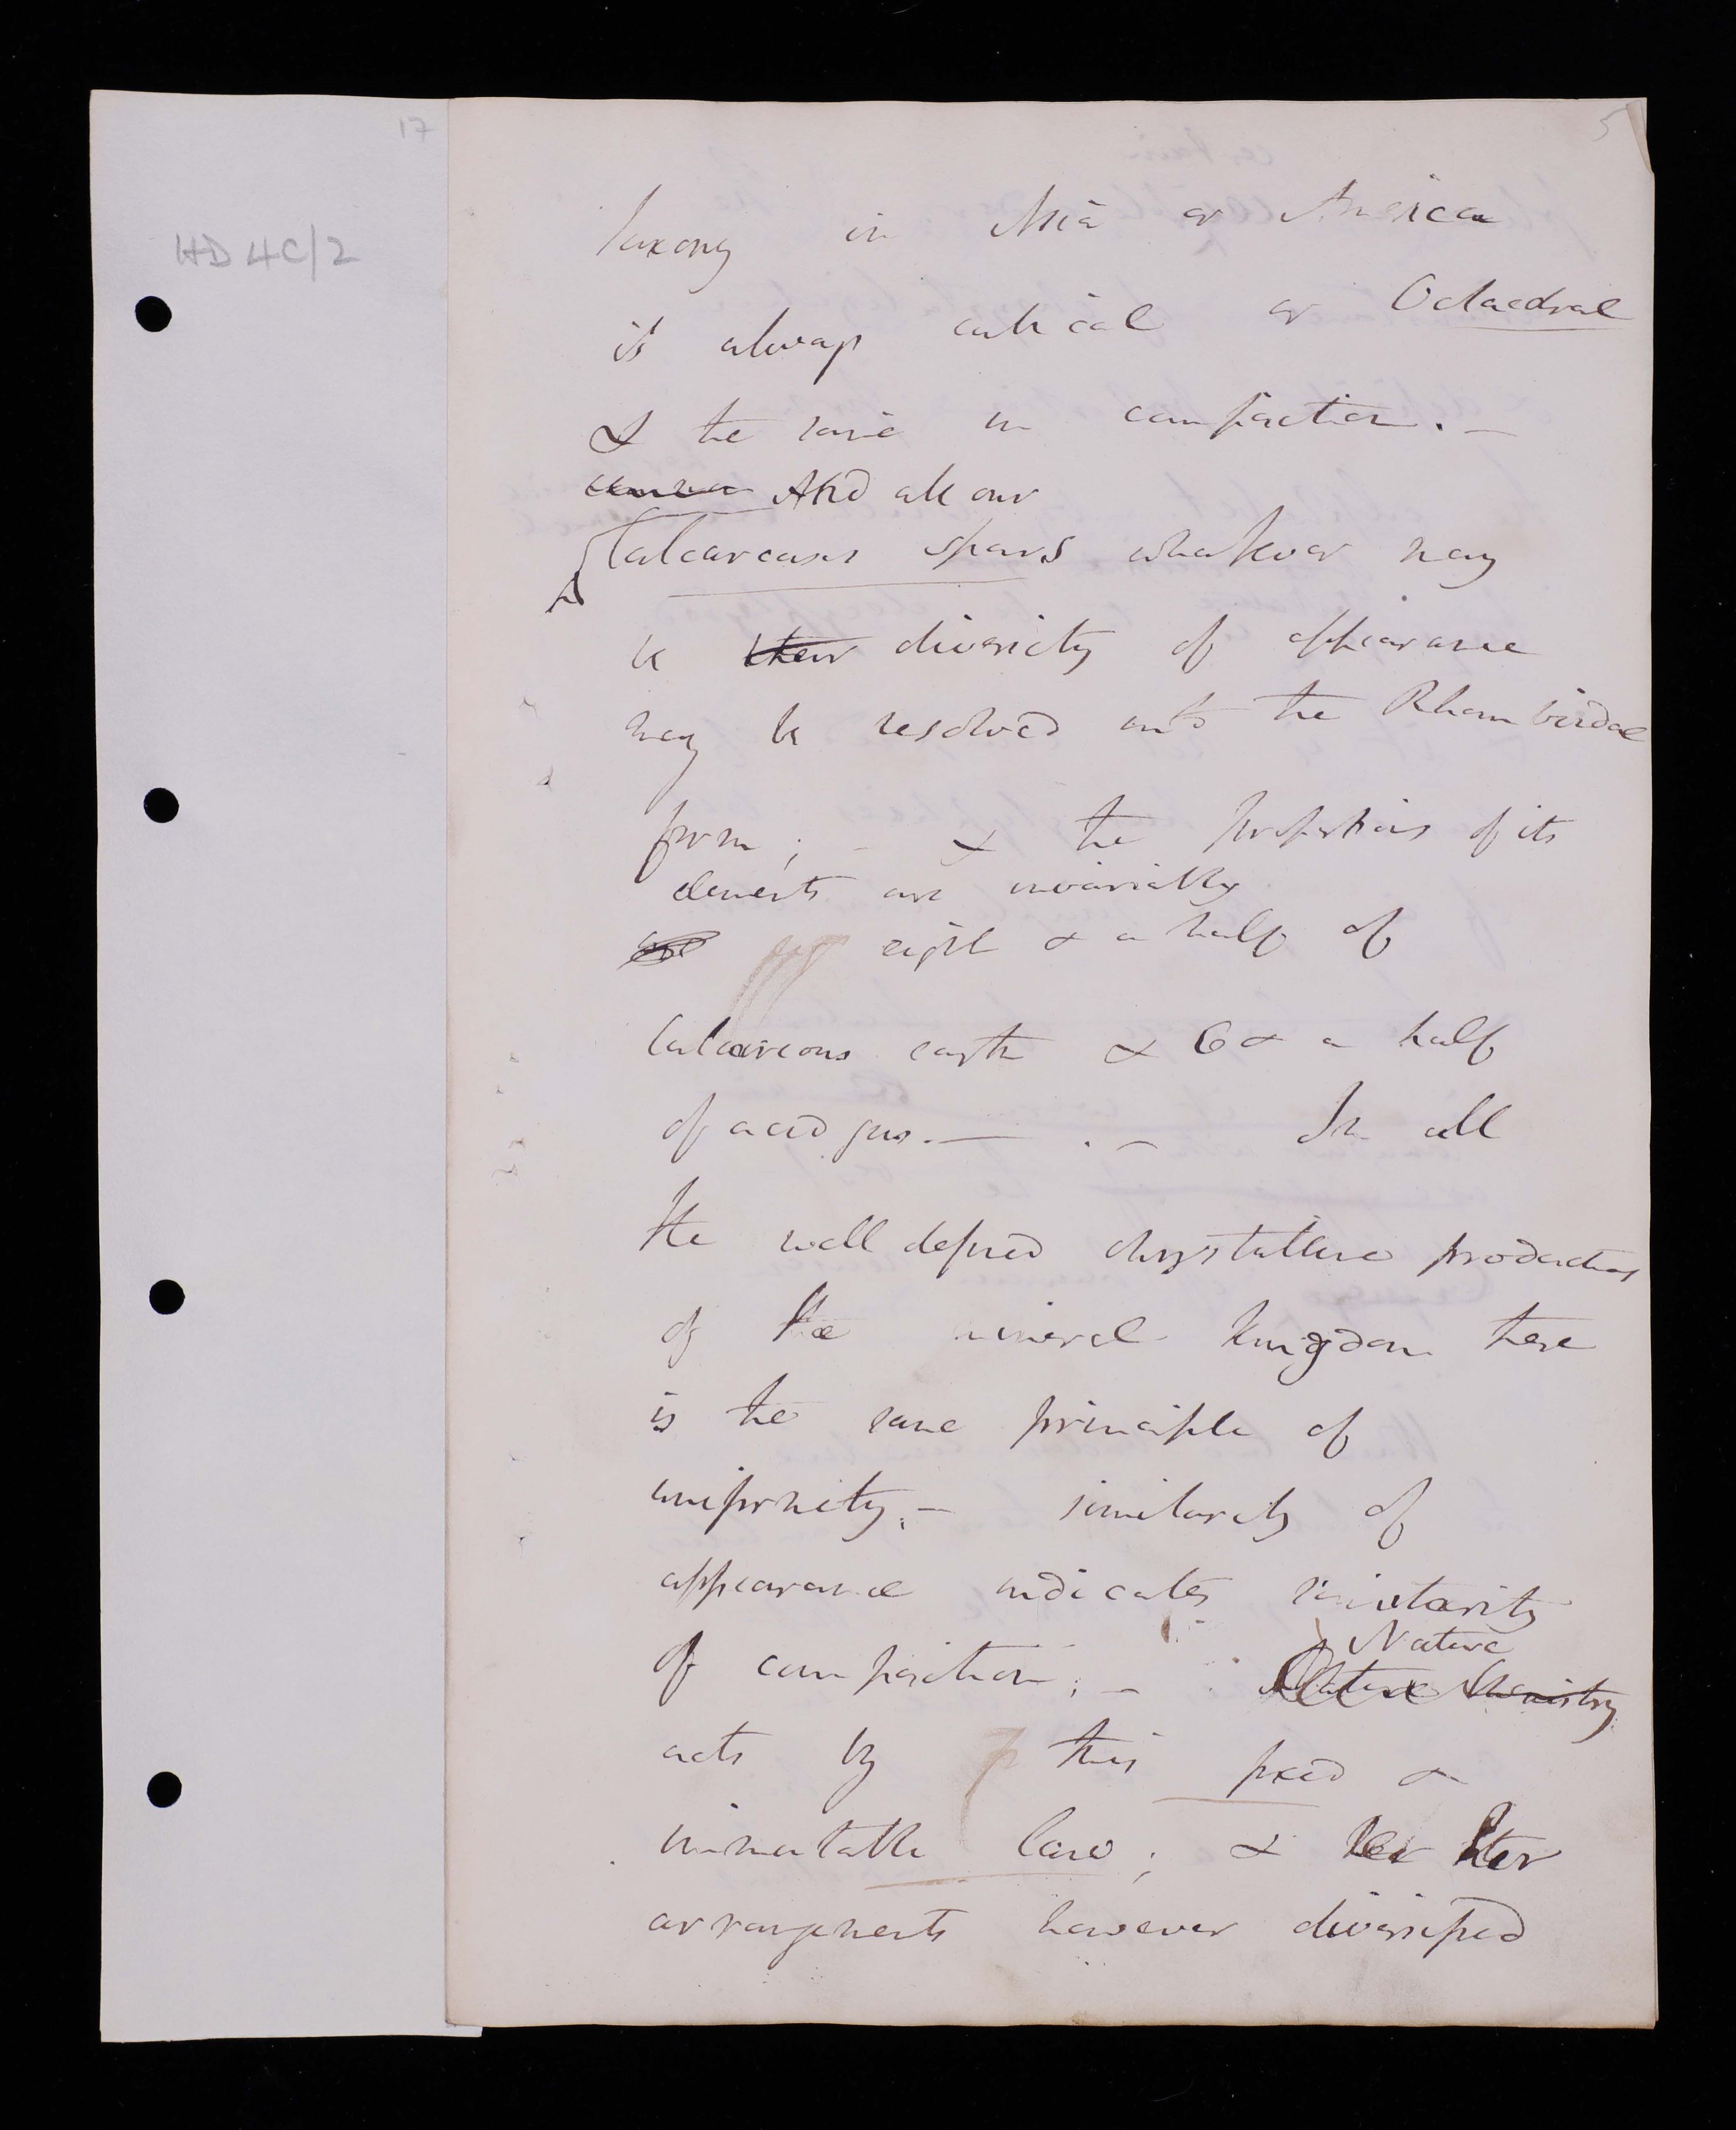 17
5
HD 4C/2
Saxony in Asia or America
it always cubical or Octaedral
& the same in composition. —
And all our
Calcareous spars whatever may
be their diversity of appearance
may be resolved into the Rhomboidal
form; - & the proportions of its
elements are invariably
eight & a half of
Calcareous earth & 6 & a half
of acid gas. — . — In all
the well defined chrystalline productions
of the mineral kingdom there
is the same principle of
uniformity. — similarity of
appearance indicates similarity
of composition; — Nature
Nature Chemistry
acts by this fixed &
immutable law; & her
arrangements however diversified